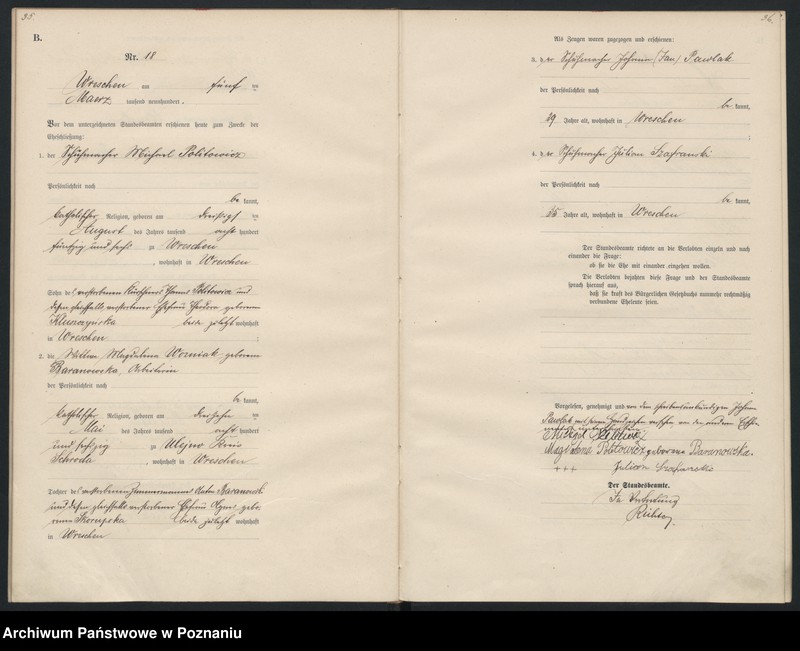 35
B.
Nr. 18
Wreschen am fünf ten
Maerz tausend neunhundert.
Vor dem unterzeichneten Standesbeamten erschienen heute zum Zwecke der
Eheschließung:
1. der Schuhmacher Michael Politowicz
Persönlichkeit nach
be kannt,
katholischer Religion, geboren am
August des Jahres tausend acht hundert
fünfzig und sechs zu Wreschen
, wohnhaft in Wreschen
Sohn des verstorbenen Politowicz und
dessen gleichfalls verstorbener Ehefrau Theodora geborenen
Kluszczyńska beide zuletzt wohnhaft
in Wreschen ;
2. die Wittwe Magdalena Wozniak geborene
Baranowska, Arbeiterin
der Persönlichkeit nach
be kannt,
katholischer Religion, geboren am
Mai des Jahres tausend acht hundert
und sechzig zu Ulejno Kreis
Schroda , wohnhaft in Wreschen
Tochter des verstorbenen Zimmermanns Anton Baranowski
und dessen gleichfalls verstorbener Ehefrau Agnes gebo-
renen Skorupska beide zuletzt wohnhaft
in Wreschen
36.
Als Zeugen waren zugezogen und erschienen:
3. der Schuhmacher Johann (Jan) Pawlak
der Persönlichkeit nach
be kannt,
Jahre alt, wohnhaft in Wreschen
;
4. der Schuhmacher Julian Szafranski
der Persönlichkeit nach
be kannt,
55 Jahre alt, wohnhaft in Wreschen
Der Standesbeamte richtete an die Verlobten einzeln und nach
einander die Frage:
ob sie die Ehe mit einander eingehen wollen.
Die Verlobten bejahten diese Frage und der Standesbeamte
sprach hierauf aus,
daß sie kraft des Bürgerlichen Gesetzbuchs nunmehr rechtmäßig
verbundene Eheleute seien.
Vorgelesen, genehmigt und von dem schreibensunkundigen Johann
Pawlak mit seinen Handzeichen versehen von den anderen
Michael
Magdalena Politowicz geborene Baranowska.
+++ Julian Szafranski
Der Standesbeamte.
In Vertretung
Archiwum Państwowe w Poznaniu